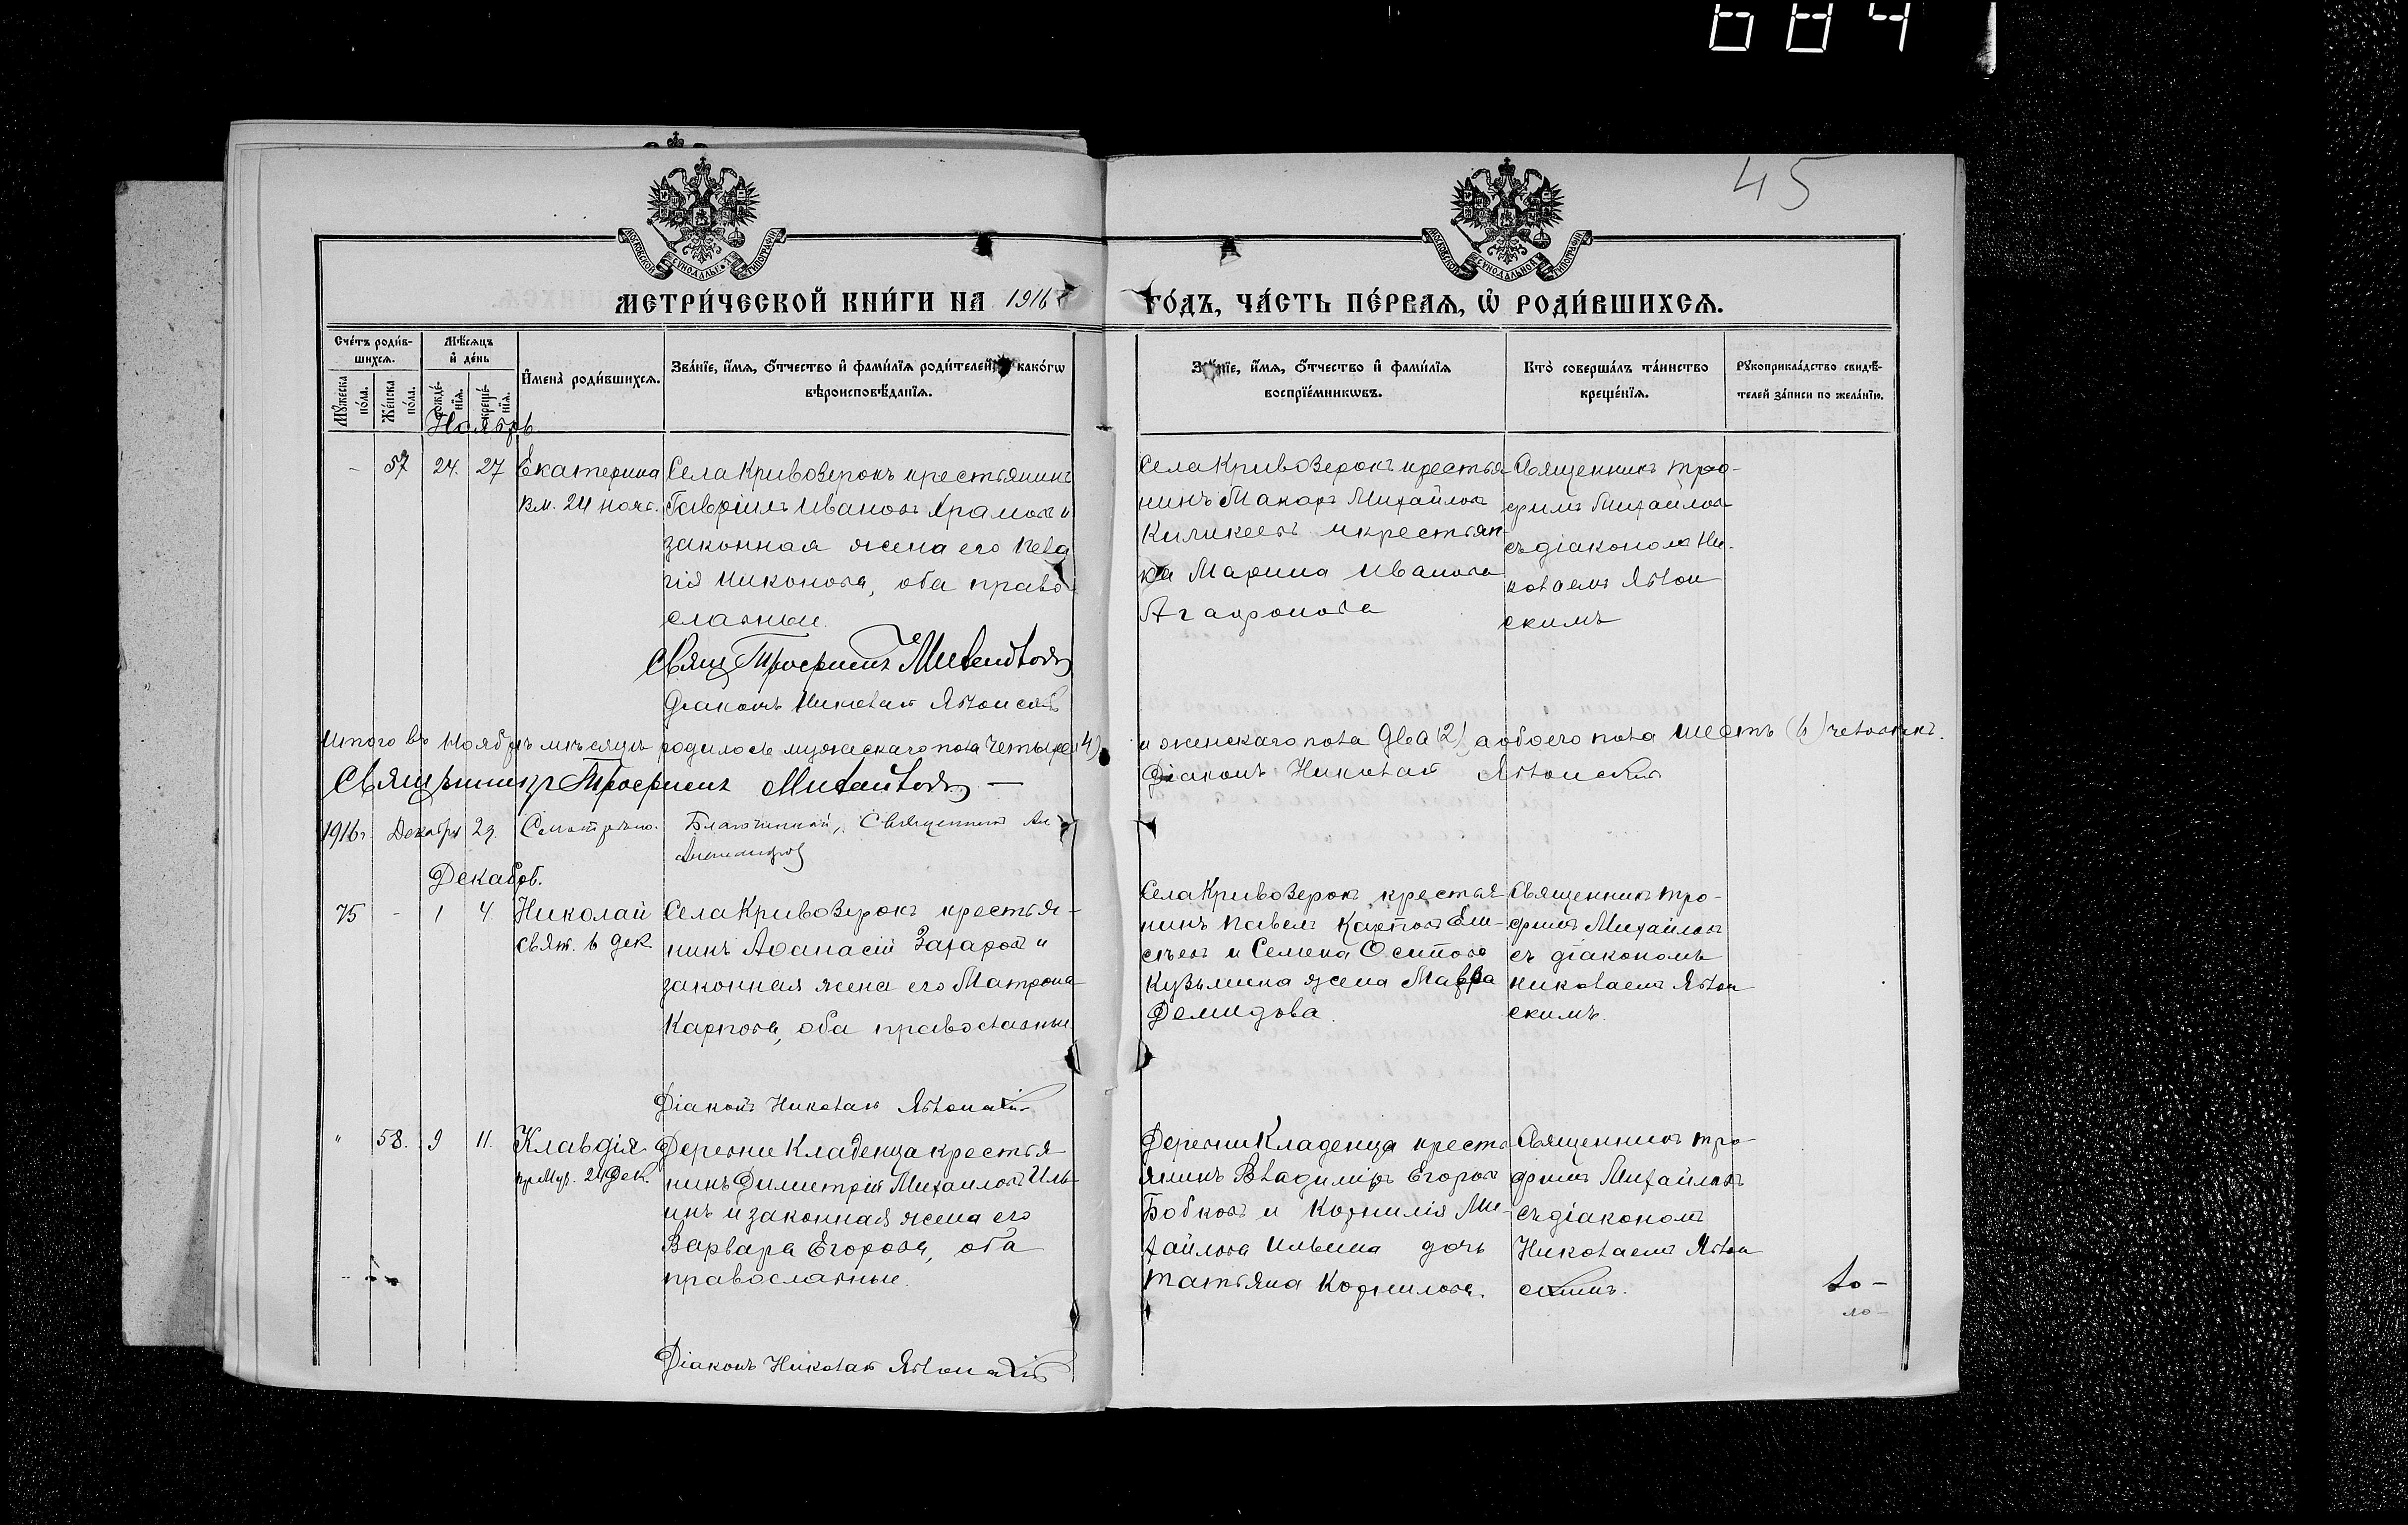 684
45
МОСКОВСКОЙ СѴНОДАЛЬНОЙ ТИПОГРАФІИ
МОСКОВСКОЙ СѴНОДАЛЬНОЙ ТИПОГРАФІИ
МЕТРИ́ЧЕСКОЙ КНИ́ГИ НА 1916 ГО́ДЪ, ЧА́СТЬ ПЕ́РВАЯ, Ѽ РОДИ́ВШИХСЯ.
Сче́тъ роди́в-
шихся.
Мꙋ́жеска по́ла.
Же́нска по́ла.
Мѣ́сяцъ
и҆ де́нь
рожде́-
нїя.
креще́-
нїя.
И҆мена̀ роди́вшихся.
Зва́нїе, и҆́мя, ѻ҆́тчество и҆ фами́лїя роди́телей, како́гѡ
вѣроисповѣ́данїя.
Зва́нїе, и҆́мя, ѻ҆́тчество и҆ фами́лїя
воспрїе́мникѡвъ.
Кто̀ соверша́лъ та́инство
креще́нїя.
Рꙋкоприкла́дство свидѣ́-
телей за́писи по жела́нїю.
Ноябрь
- 57 24. 27 Екатерина
вм. 24 нояб.
Села Кривозерокъ крестьянинъ
Гавріилъ Ивановъ Храмовъ и
законная жена его Пела
гія Никонова, оба право
славные.
Села Кривозерокъ крестья
нинъ Макаръ Михайловъ
Киликеевъ и крестьян-
ка Марина Иванова
Агафонова
Священникъ Тро-
фимъ Михайловъ
съ діакономъ Ни-
колаемъ Явлон
скимъ
Свящ Трофимъ Михайловъ
Діаконъ Николай Явлонскій
Итого въ Ноябрѣ мѣсяцѣ родилось мужескаго пола четыре (4)
и женскаго пола два (2) а обоего пола шесть (6) человѣкъ.
Священникъ Трофимъ Михайловъ —
Діаконъ Николай Явлонскій
1916 г. Декабря 29. Смотрѣно. Благочинный, Священникъ Ал
Александров
Декабрь.
75 - 1 4. Николай
свят. 6 дек.
Села Кривозерокъ крестья-
нинъ Аѳанасій Захаровъ и
законная жена его Матрона
Карпова, оба православные
Села Кривозерокъ крестья
нинъ Павелъ Карповъ Ели-
сѣевъ и Семена Осипова
Кузьмина жена Мавра
Демидова.
Священникъ Тро-
фимъ Михайловъ
съ діакономъ
Николаемъ Явлон
скимъ.
Діаконъ Николай Явлонскій
" 58. 9 11. Клавдія
пр Муч. 24 Дек.
Деревни Кладенца крестья
нинъ Димитрій Михайловъ Иль-
инъ и законная жена его
Варвара Егорова, оба
православные.
Деревни Кладенца кресть
янинъ Владиміръ Егоровъ
Бобковъ и Корнилія Ми-
хайлова Ильина дочь
Татьяна Корнилова.
Священникъ Тро-
фимъ Михайловъ
съ діакономъ
Николаемъ Явлон
скимъ.
Діаконъ Николай Явлонскій